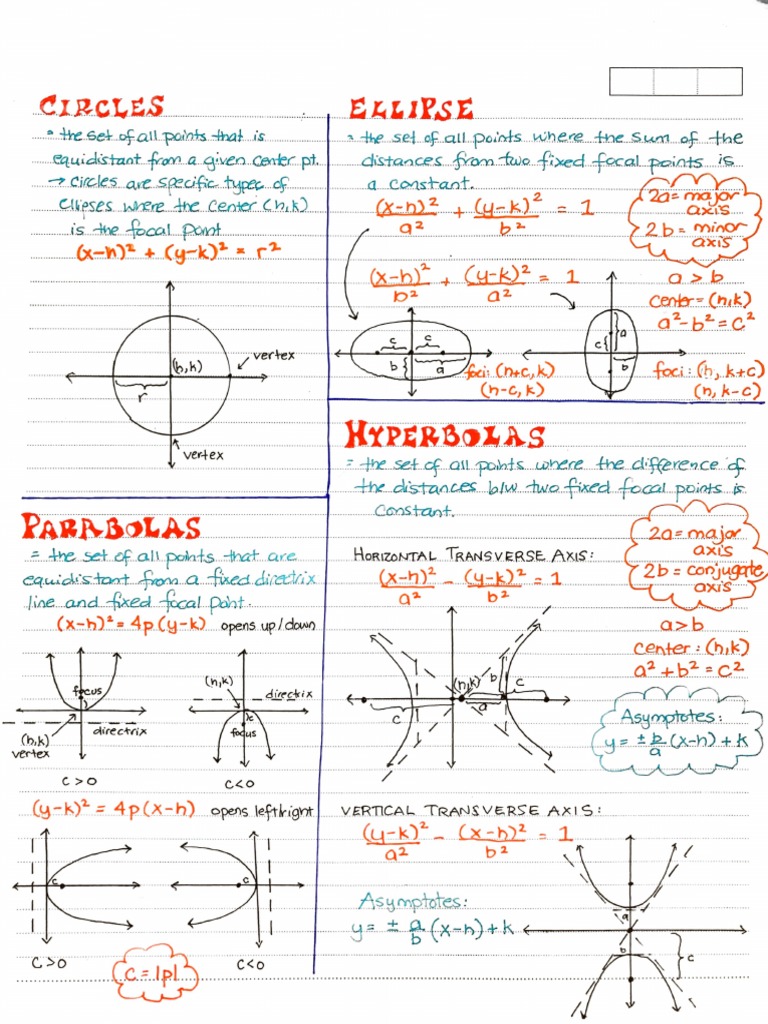 CIRCLES
• the set of all points that is
equidistant from a given center pt.
→ circles are specific types of
Ellipses where the center (h,k)
is the focal point
(x-h)² + (y-k)² = r²
(h,k)
vertex
r
vertex
ELLIPSE
= the set of all points where the sum of the
distances from two fixed focal points is
a constant.
(x-h)²/a² + (y-k)²/b² = 1
(x-h)²/b² + (y-k)²/a² = 1
2a = major
axis
2b = minor
axis
a > b
center = (h,k)
a² - b² = c²
c c
b a
foci: (h+c, k)
(h-c, k)
a
c
b
foci: (h, k+c)
(h, k-c)
PARABOLAS
= the set of all points that are
equidistant from a fixed directrix
line and fixed focal point.
(x-h)² = 4p(y-k) opens up/down
focus
c
(h,k)
vertex
directrix
c>0
(h,k)
directrix
c
focus
c<0
(y-k)² = 4p(x-h) opens left/right
c
c>0
c
c<0
c = |p|
HYPERBOLAS
= the set of all points where the difference of
the distances b/w two fixed focal points is
constant.
HORIZONTAL TRANSVERSE AXIS:
(x-h)²/a² - (y-k)²/b² = 1
2a = major
axis
2b = conjugate
axis
a>b
center: (h,k)
a² + b² = c²
(h,k)
b
c
c
a
Asymptotes:
y = ± b/a (x-h) + k
VERTICAL TRANSVERSE AXIS:
(y-k)²/a² - (x-h)²/b² = 1
Asymptotes:
y = ± a/b (x-h) + k
a
b
c